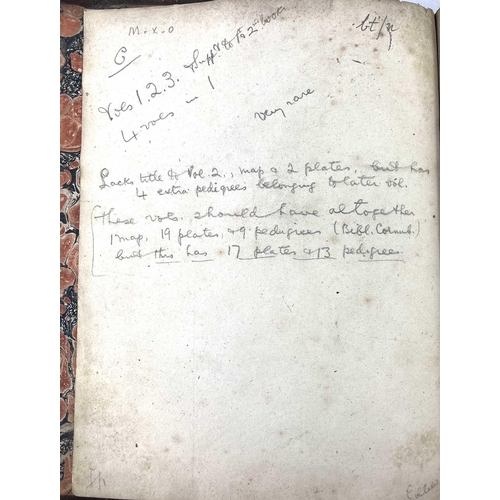 M.x.o
bt/
Vols 1.2.3. Suppt to 2nd book
4 vols in 1
very rare
Lacks title to Vol 2., map & 2 plates, but has
4 extra pedigrees belonging to later vol.
These vols. should have altogether
1 map, 19 plates, & 9 pedigrees (Bibl. Cornub.)
but this has 17 plates & 13 pedigrees.